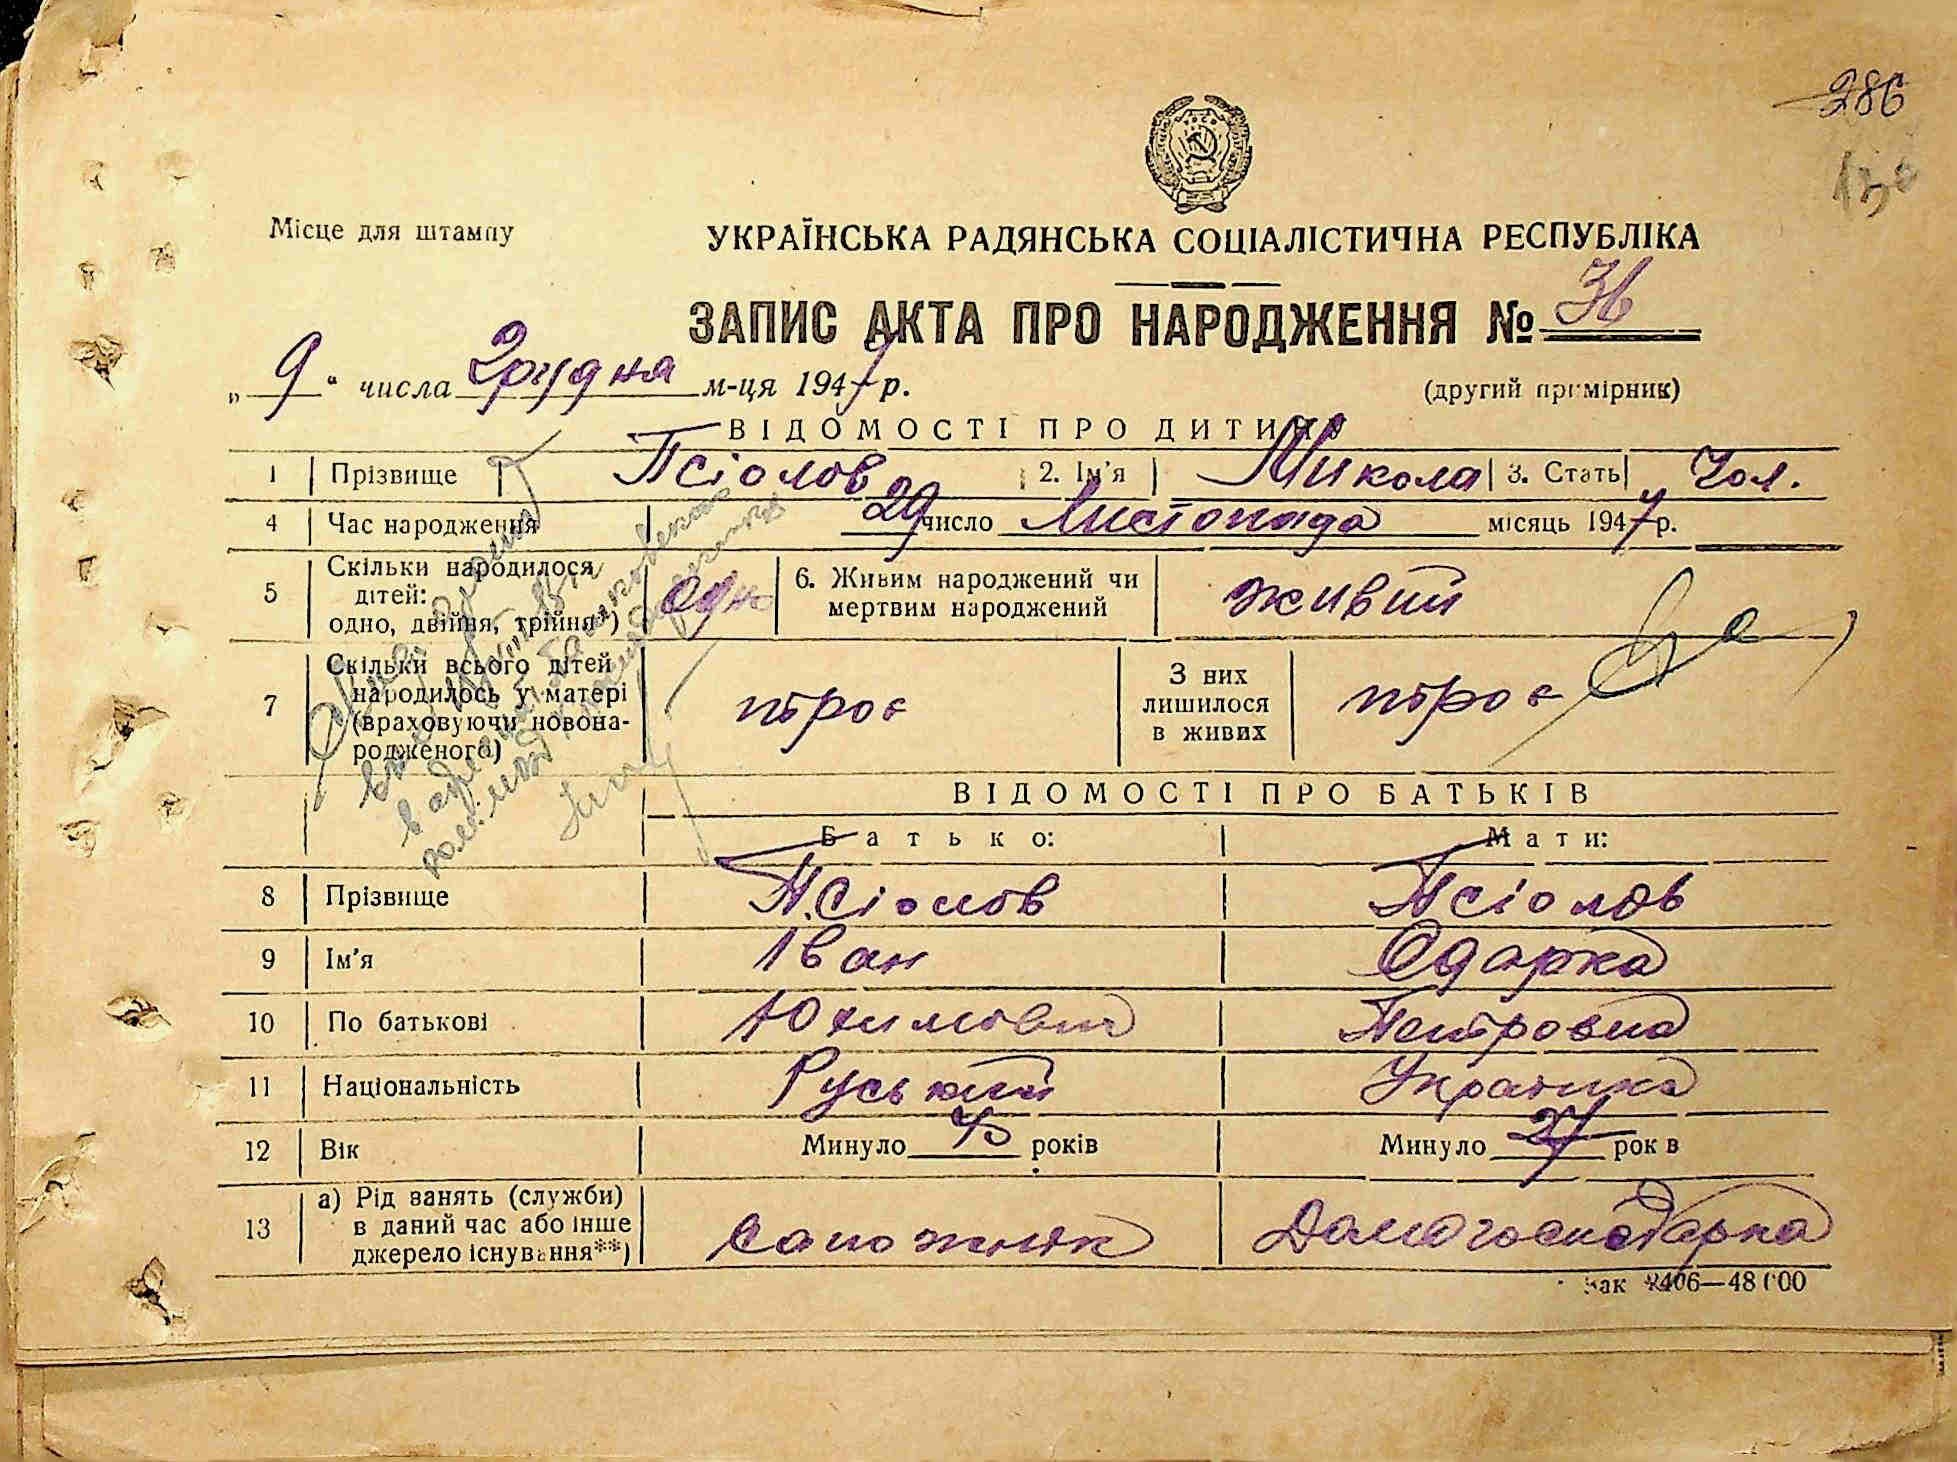 286
130
Місце для штампу
УКРАЇНСЬКА РАДЯНСЬКА СОЦІАЛІСТИЧНА РЕСПУБЛІКА
ЗАПИС АКТА ПРО НАРОДЖЕННЯ №
„ 9 " числа Грудня м-ця 1947 р.
(другий примірник)
ВІДОМОСТІ ПРО ДИТИНУ
1 Прізвище Псіолов 2. Ім'я Микола 3. Стать Чол.
4 Час народження 29 число Листопада місяць 1947 р.
5 Скільки народилося дітей: одно, двійня, трійня*) одно 6. Живим народжений чи мертвим народжений живий
7 Скільки всього дітей народилось у матері (враховуючи новонародженого) троє З них лишилося в живих троє
ВІДОМОСТІ ПРО БАТЬКІВ
Батько: Мати:
8 Прізвище Псіолов Псіолов
9 Ім'я Іван Одарка
10 По батькові Юхимович Петровна
11 Національність Руський Українка
12 Вік Минуло 43 років Минуло 27 років
13 а) Рід занять (служби) в даний час або інше джерело існування**) сапожнік Домогосподарка
Зак 2406—48 000